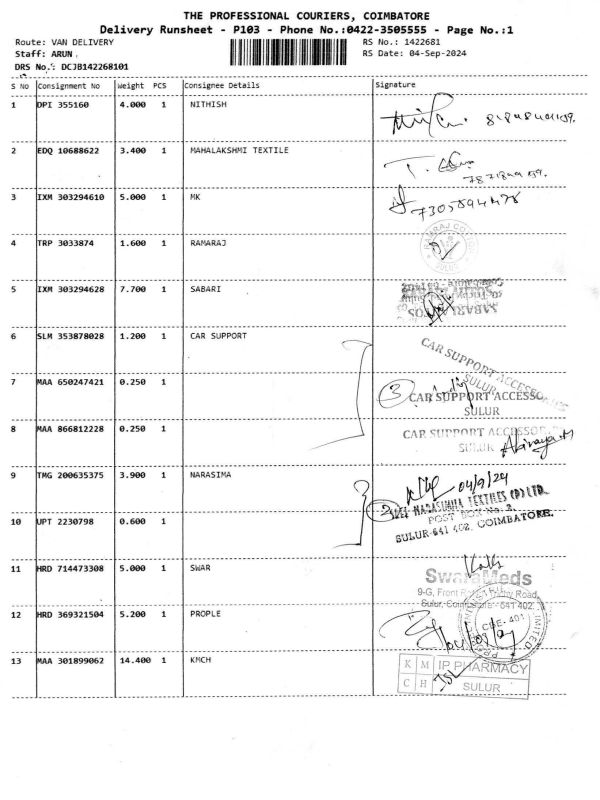 THE PROFESSIONAL COURIERS, COIMBATORE
Delivery Runsheet - P103 - Phone No.:0422-3505555 - Page No.:1
Route: VAN DELIVERY RS No.: 1422681
Staff: ARUN. RS Date: 04-Sep-2024
DRS No.: DCJB142268101
S No Consignment No Weight PCS Consignee Details Signature
1 DPI 355160 4.000 1 NITHISH
2 EDQ 10688622 3.400 1 MAHALAKSHMI TEXTILE
3 IXM 303294610 5.000 1 MK
4 TRP 3033874 1.600 1 RAMARAJ
SULUR
5 IXM 303294628 7.700 1 SABARI
6 SLM 353878028 1.200 1 CAR SUPPORT
CAR SUPPORT ACCESSORIES
SULUR
7 MAA 650247421 0.250 1
3 CAR SUPPORT ACCESSO
SULUR
8 MAA 866812228 0.250 1
CAR SUPPORT ACCESSO
SULUR
9 TMG 200635375 3.900 1 NARASIMA
04/9/24
2 NARASIMHA TEXTILES (P) LTD.
POST BOX No. 2,
SULUR-641 402, COIMBATORE.
10 UPT 2230798 0.600 1
11 HRD 714473308 5.000 1 SWAR
SwaraMeds
9-G, Front Road,
Sulur, Coimbatore - 641 402.
12 HRD 369321504 5.200 1 PROPLE
CBE- 401
13 MAA 301899062 14.400 1 KMCH
K M IP PHARMACY
C H SULUR